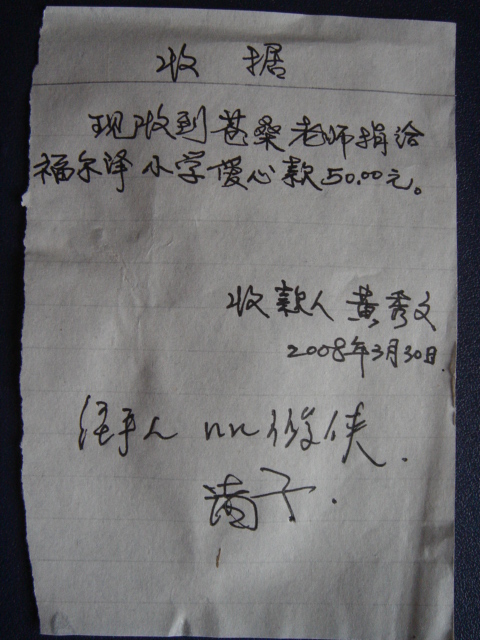 收 据
现收到甚桑老师捐给
福尔泽小学爱心款50.00元。
收款人 黄秀文
2008年3月30日.
经手人 nn 俊侠.
南子.